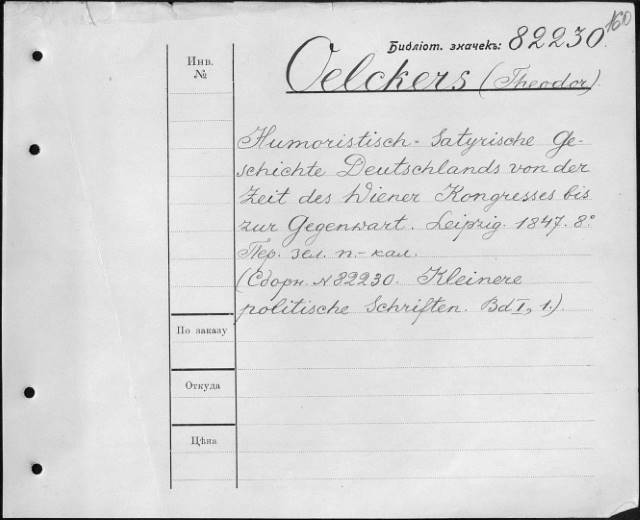 160
Библіот. значекъ: 82230.
Инв.
№
Oelckers (Theodor).
Humoristisch-Satyrische Ge-
schichte Deutschlands von der
Zeit des Wiener Kongresses bis
zur Gegenwart. Leipzig. 1847. 8°
Пер. зел. п.-кал.
(Сборн. № 82230. Kleinere
politische Schriften. Bd I, 1.).
По заказу
Откуда
Цѣна